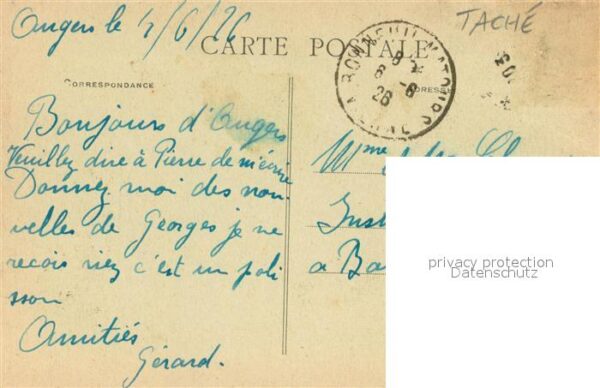 Angers le 4/6/26
TACHÉ
CARTE POSTALE
CORRESPONDANCE
ADRESSE
BONNEUIL-MATOURS
8 6 -6
26
Bonjours d'Angers
Veuillez dire à Pierre de m'écrire
Donnez moi des nou-
velles de Georges je ne
recois riez c'est un poli
sson
Amitiés
Gérard.
Mme
Inst
a Bo
privacy protection
Datenschutz